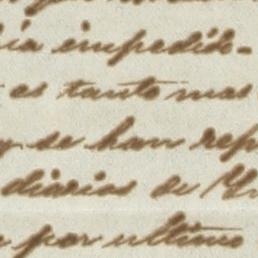 ia impedido-
es tanto mas
y se han rep
diarios de
por ultimo